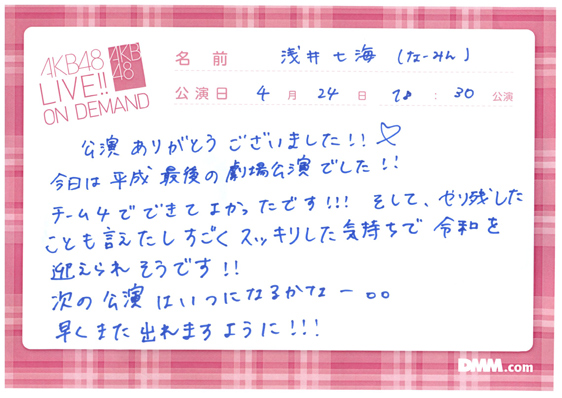 AKB48
LIVE!!
ON DEMAND
AKB
48
名前 浅井七海 (なーみん)
公演日 4月24日 18:30公演
公演ありがとうございました!!♡
今日は平成最後の劇場公演でした!!
チーム4でできてよかったです!!! そして、やり残した
ことも言えたしすごくスッキリした気持ちで令和を
迎えられそうです!!
次の公演はいつになるかなー。。
早くまた出れますように!!!
DMM.com